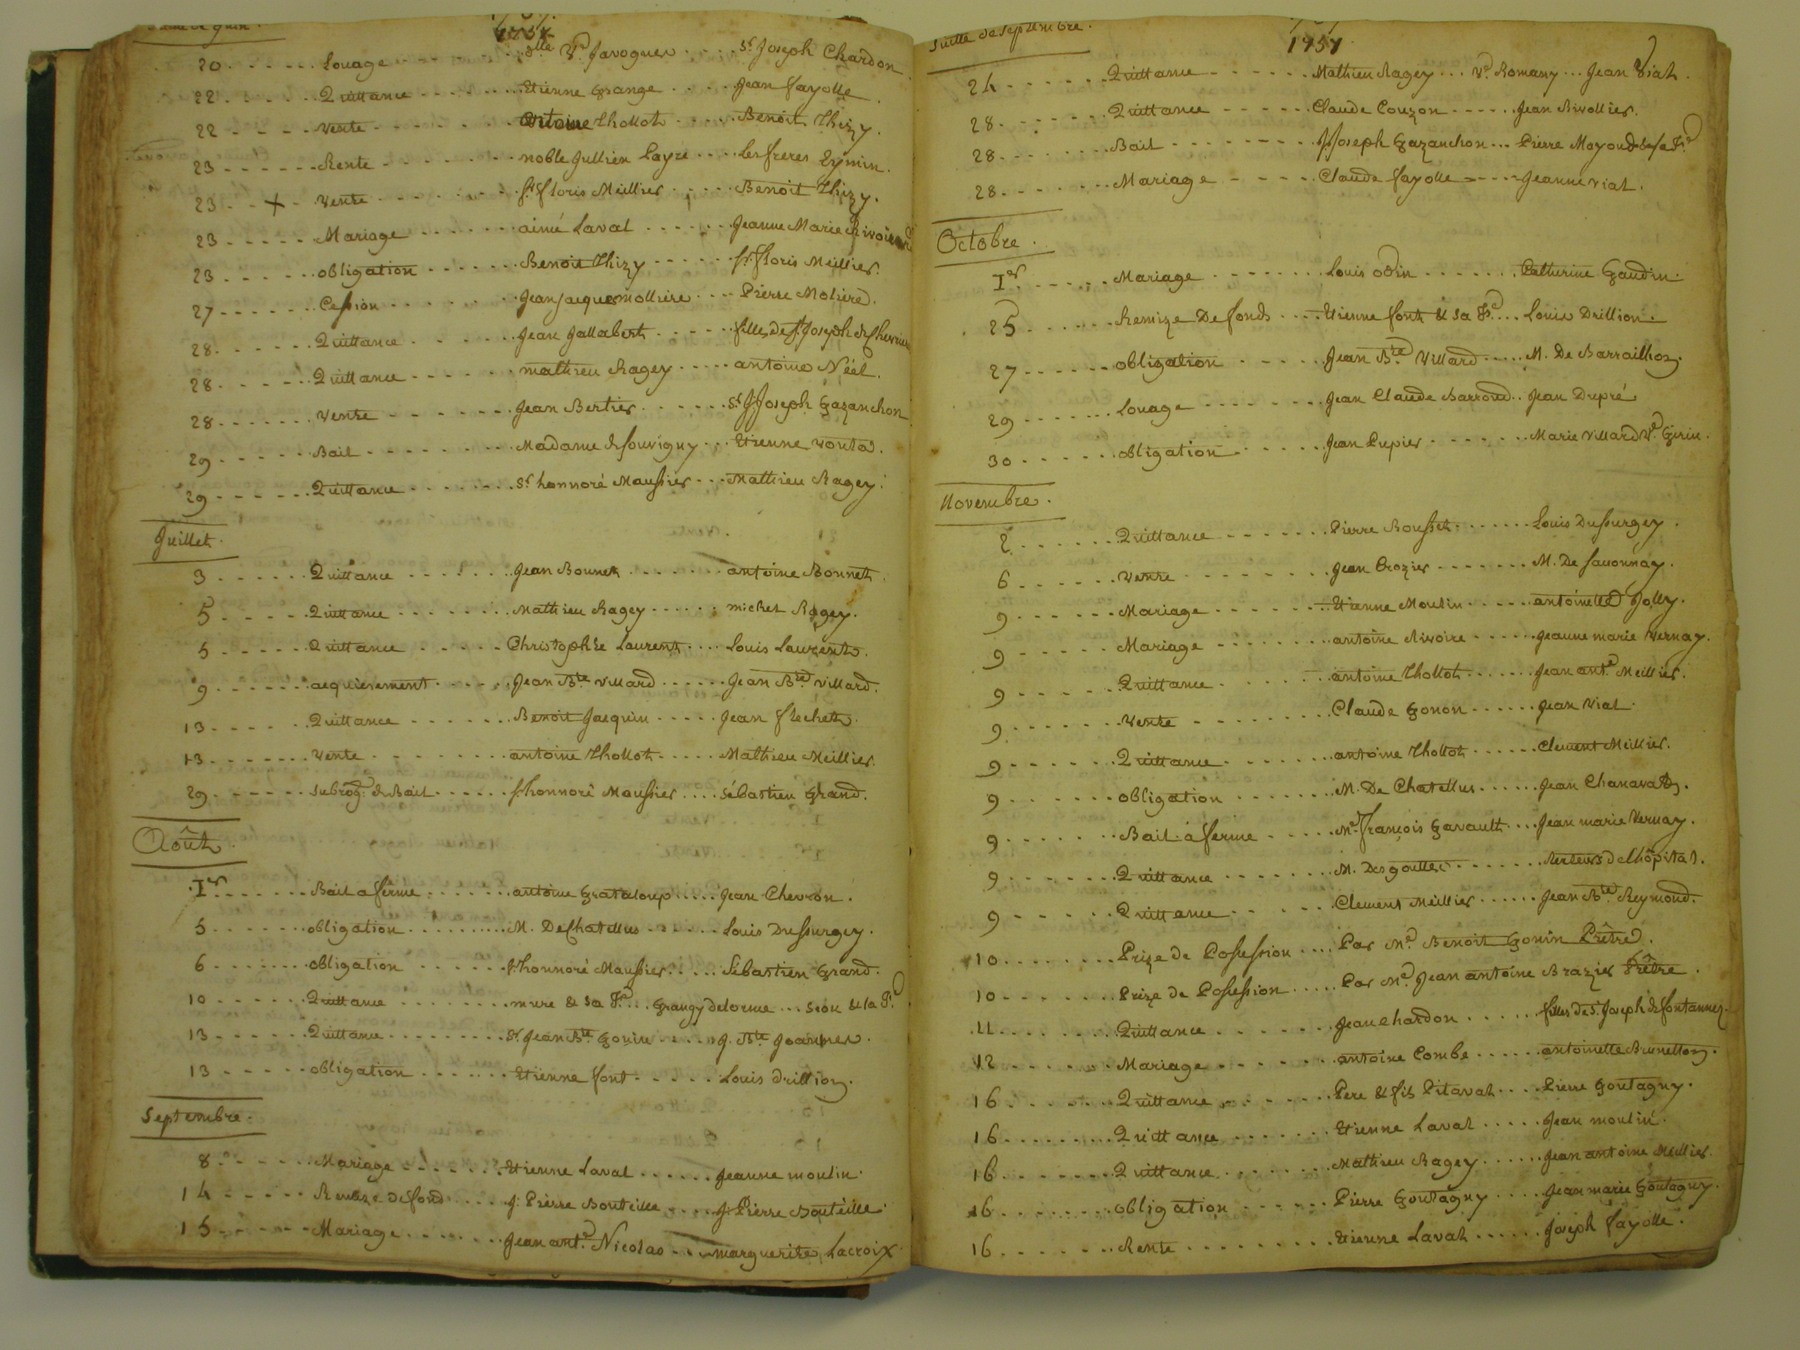 Suitte de Juin.
1757.
20 Louage Dlle Ve Javogues Sr Joseph Chardon
22 Quittance Etienne Grange Jean fayolle
22 Vente Antoine Thollot Benoit Thizy.
23 Rente noble Jullien Layre Les freres Eymin.
23 + Vente Sr floris Meillier Benoit Thizy.
23 Mariage aimé Laval Jeanne Marie
23 obligation Benoit Thizy Sr floris Meillier.
27 Cession Jean Jacquemolliere Pierre Moliere.
28 Quittance Jean Jallabert filles de St Joseph de
28 Quittance mathieu Ragey antoine Néel.
28 Vente Jean Bertier Sr J Joseph Gazanchon
29 Bail Madame de Souvigny Etienne
29 Quittance Sr honnoré Maussier Mathieu Ragey.
Juillet.
3 Quittance Jean Bonnet antoine Bonnet
5 Quittance Mathieu Ragey michel Ragey.
5 Quittance Christophle Laurent Louis Laurent.
9 acquiesement Jean Bte Villard Jean Bte Villard.
13 Quittance Benoit Jacquin Jean flechet.
13 Vente antoine Thollot Mathieu Meillier.
29 Subrogn de Bail Sr honnoré Maussier Sébastien Grand.
Août.
1er Bail a ferme antoine Grataloup Jean Chevron.
5 obligation M. De Chatellus Louis Dussurgey.
6 obligation Sr honnoré Maussier Sébastien Grand.
10 Quittance mure & sa fe Grangy delorme & la
13 Quittance Sr Jean Bte Gonin J. Bte
13 obligation Etienne font Louis drillion.
Septembre.
8 Mariage Etienne Laval Jeanne moulin.
14 Remize de fond J. Pierre Bouteille J. Pierre Bouteille
15 Mariage Jean ante Nicolas marguerite Lacroix
Suitte de Septembre.
1757.
24 Quittance Mathieu Ragey Ve Romany Jean Vial.
28 Quittance Claude Couzon Jean Rivollier.
28 Bail J Joseph Gazanchon Pierre Moyoud & sa fe
28 Mariage Claude fayolle Jeanne Vial.
Octobre.
1er Mariage Louis odin Catherine Gaudin.
25 Remize De fonds Etienne font & sa fe Louis Drillion.
27 obligation Jean Bte Villard M. De Barraillon.
29 Louage Jean Claude Barroud Jean Dupré
30 obligation Jean Pupier Marie Villard Ve Girin.
Novembre.
2 Quittance Pierre Rousset Louis Dussurgey.
6 Vente Jean Crozier M. De Sauonnay.
9 Mariage Etienne Moulin antoinette Jolly.
9 Mariage antoine Rivoire Jeanne marie Vernay.
9 Quittance antoine Thollot Jean ante Meillier.
9 Vente Claude Gonon Jean Vial.
9 Quittance antoine Thollot Clement Meillier.
9 obligation M. De Chatellus Jean Chanavat.
9 Bail à ferme Me françois Gavault Jean marie Vernay.
9 Quittance M. Desgouttes Recteurs de L'hôpital.
9 Quittance Clement Meillier Jean Bte Reymond.
10 Prize de Possession Par Me Benoit Gonin Prêtre.
10 Prize de Possession Par Me Jean antoine Brazier Prêtre.
11 Quittance Jean chardon filles de St Joseph de fontannez.
12 Mariage antoine Combe antoinette Brunetton.
16 Quittance Pere & fils Pitaval Pierre Goutagny.
16 Quittance Etienne Laval Jean moulin.
16 Quittance Mathieu Ragey Jean antoine Meillier.
16 obligation Pierre Goutagny Jean marie Goutagny.
16 Rente Etienne Laval Joseph fayolle.